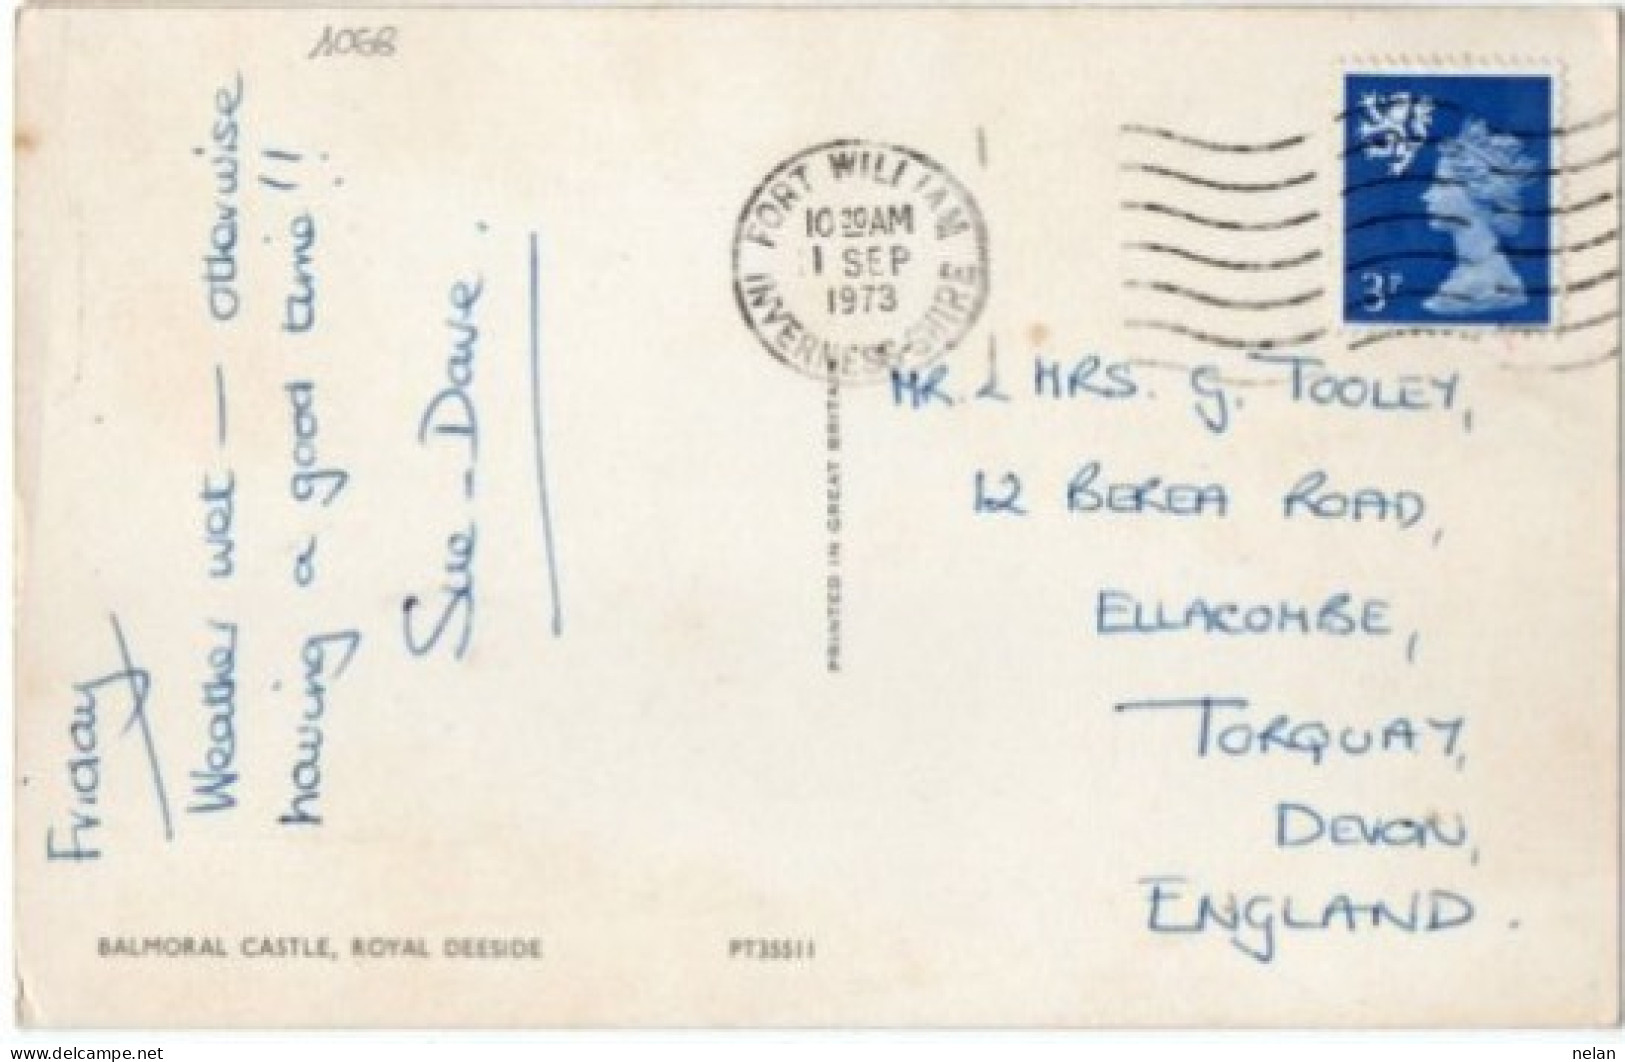 10GB
Friday
Weather wet — otherwise
having a good time!!
Sue - Dave.
FORT WILLIAM
10 30 AM
1 SEP
1973
INVERNESS-SHIRE
3P
MR. & MRS. G. TOOLEY,
12 BEREA ROAD,
ELLACOMBE,
TORQUAY,
DEVON,
ENGLAND.
PRINTED IN GREAT BRITAIN
BALMORAL CASTLE, ROYAL DEESIDE
PT35511
delcampe.net
nelan